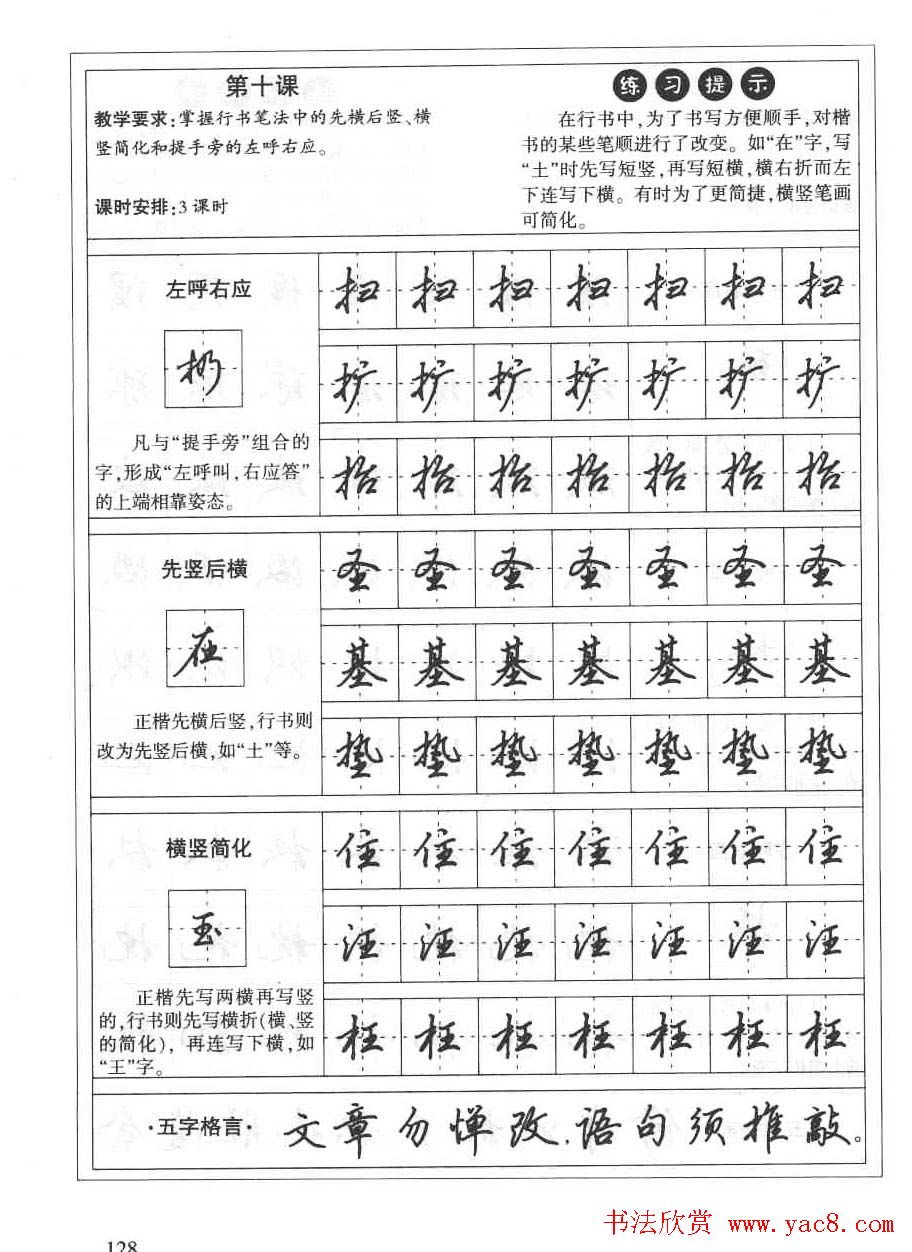 第十课
教学要求:掌握行书笔法中的先横后竖、横
竖简化和提手旁的左呼右应。
课时安排:3课时
练习提示
在行书中,为了书写方便顺手,对楷
书的某些笔顺进行了改变。如“在”字,写
“土”时先写短竖,再写短横,横右折而左
下连写下横。有时为了更简捷,横竖笔画
可简化。
左呼右应
扔
凡与“提手旁”组合的
字,形成“左呼叫,右应答”
的上端相靠姿态。
扫扫扫扫扫扫扫
扩扩扩扩扩扩扩
抬抬抬抬抬抬抬
先竖后横
在
正楷先横后竖,行书则
改为先竖后横,如“土”等。
圣圣圣圣圣圣圣
基基基基基基基
垫垫垫垫垫垫垫
横竖简化
玉
正楷先写两横再写竖
的,行书则先写横折(横、竖
的简化),再连写下横,如
“王”字。
住住住住住住住
汪汪汪汪汪汪汪
枉枉枉枉枉枉枉
·五字格言· 文章勿惮改,语句须推敲。
书法欣赏 www.yac8.com
128